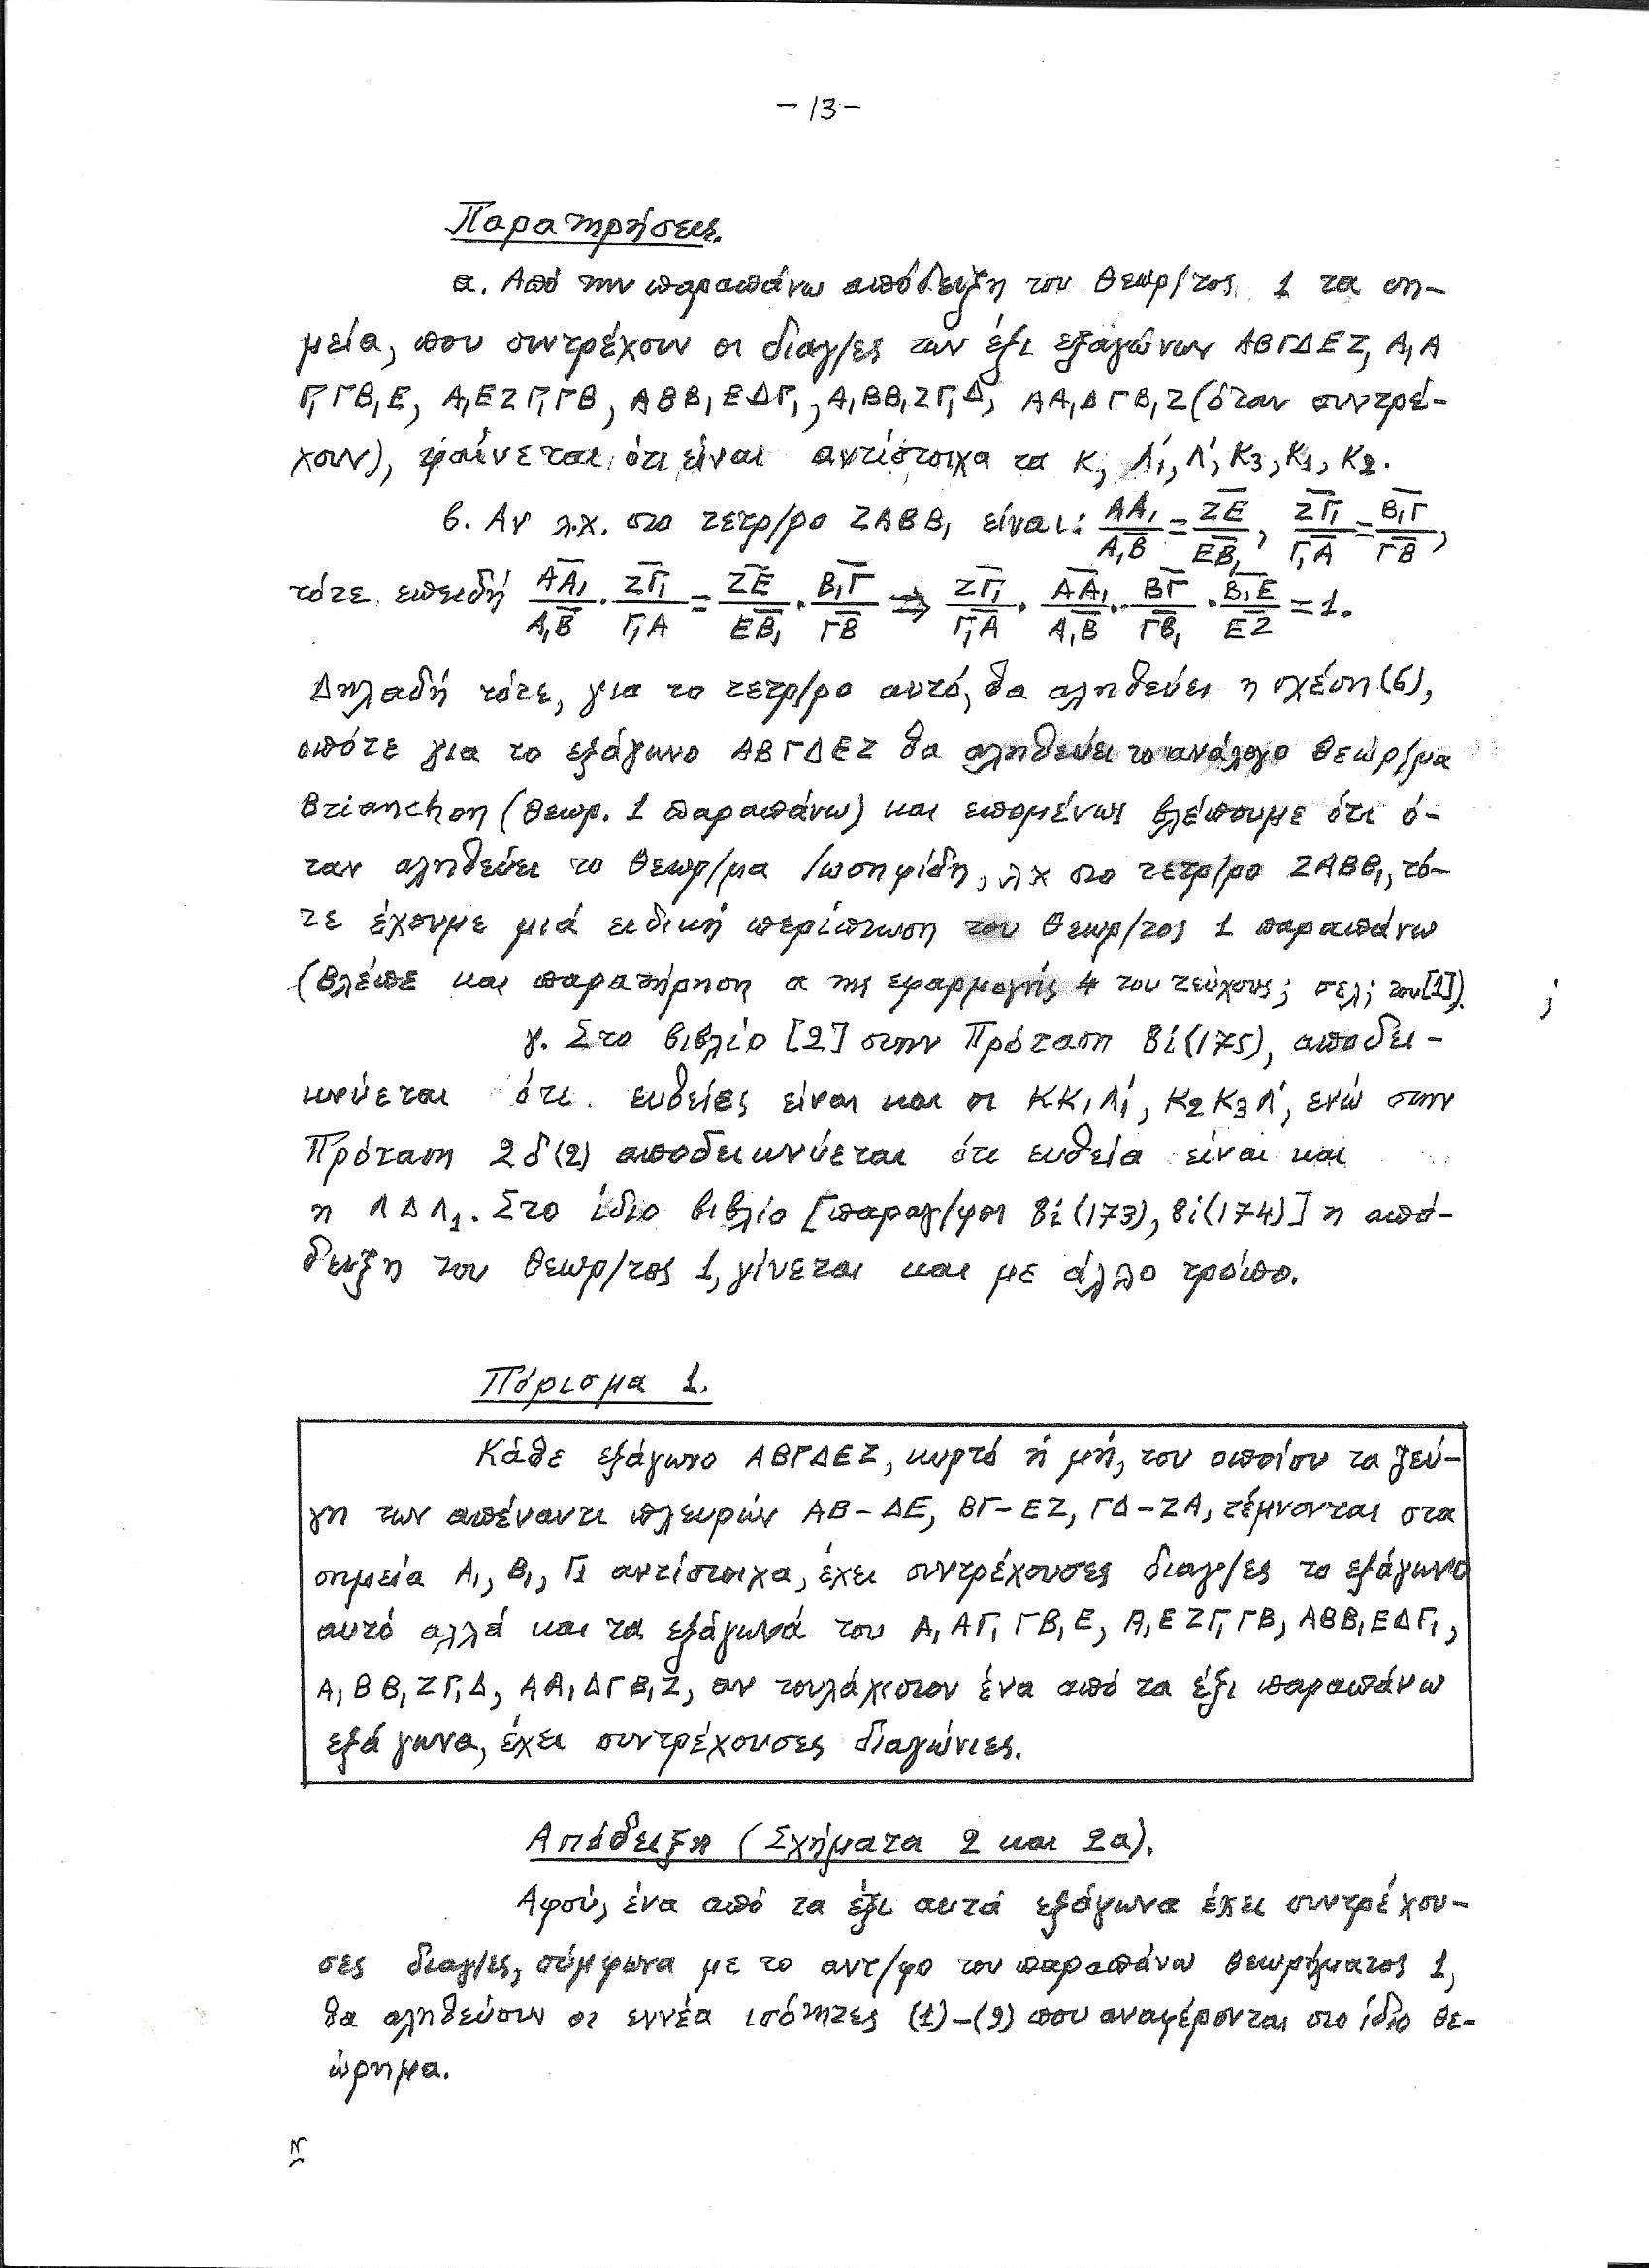 - 13 -
Παρατηρήσεις.
α. Από την παραπάνω απόδειξη του θεωρ/τος 1 τα ση-
μεία, που συντρέχουν οι διαγ/ες των έξι εξαγώνων ΑΒΓΔΕΖ, Α₁Α
Γ₁ΓΒ₁Ε, Α₁ΕΖΓ₁ΓΒ, ΑΒΒ₁ΕΔΓ₁, Α₁ΒΒ₁ΖΓ₁Δ, ΑΑ₁ΔΓΒ₁Ζ (όταν συντρέ-
χουν), φαίνεται ότι είναι αντίστοιχα τα Κ, Λ₁́, Λ́, Κ₃, Κ₁, Κ₂.
β. Αν λ.χ. στο τετρ/ρο ΖΑΒΒ₁ είναι: ΑΑ₁/Α₁Β = ΖΕ/ΕΒ₁, ΖΓ₁/Γ₁Α = Β₁Γ/ΓΒ,
τότε επειδή ΑΑ₁/Α₁Β · ΖΓ₁/Γ₁Α = ΖΕ/ΕΒ₁ · Β₁Γ/ΓΒ ⇒ ΖΓ₁/Γ₁Α · ΑΑ₁/Α₁Β · ΒΓ/ΓΒ₁ · Β₁Ε/ΕΖ = 1.
Δηλαδή τότε, για το τετρ/ρο αυτό, θα αληθεύει η σχέση (6),
οπότε για το εξάγωνο ΑΒΓΔΕΖ θα αληθεύει το ανάλογο θεώρ/μα
Brianchon (θεωρ. 1 παραπάνω) και επομένως βλέπουμε ότι ό-
ταν αληθεύει το θεωρ/μα Ιωσηφίδη, λχ στο τετρ/ρο ΖΑΒΒ₁, τό-
τε έχουμε μιά ειδική περίπτωση του θεωρ/τος 1 παραπάνω
(βλέπε και παρατήρηση α της εφαρμογής 4 του τεύχους; σελ; του [1]). ;
γ. Στο βιβλίο [2] στην Πρόταση 8i(175), αποδει-
κνύεται ότι ευθείες είναι και οι ΚΚ₁Λ₁́, Κ₂Κ₃Λ́, ενώ στην
Πρόταση 2δ(2) αποδεικνύεται ότι ευθεία είναι και
η ΛΔΛ₁. Στο ίδιο βιβλίο [παραγ/φοι 8i(173), 8i(174)] η από-
δειξη του θεωρ/τος 1, γίνεται και με άλλο τρόπο.
Πόρισμα 1.
Κάθε εξάγωνο ΑΒΓΔΕΖ, κυρτό ή μή, του οποίου τα ζεύ-
γη των απέναντι πλευρών ΑΒ-ΔΕ, ΒΓ-ΕΖ, ΓΔ-ΖΑ, τέμνονται στα
σημεία Α₁, Β₁, Γ₁ αντίστοιχα, έχει συντρέχουσες διαγ/ες το εξάγωνο
αυτό αλλά και τα εξάγωνά του Α₁ΑΓ₁ΓΒ₁Ε, Α₁ΕΖΓ₁ΓΒ, ΑΒΒ₁ΕΔΓ₁,
Α₁ΒΒ₁ΖΓ₁Δ, ΑΑ₁ΔΓΒ₁Ζ, αν τουλάχιστον ένα από τα έξι παραπάνω
εξάγωνα, έχει συντρέχουσες διαγώνιες.
Απόδειξη (Σχήματα 2 και 2α).
Αφού, ένα από τα έξι αυτά εξάγωνα έχει συντρέχου-
σες διαγ/ες, σύμφωνα με το αντ/φο του παραπάνω θεωρήματος 1,
θα αληθεύουν οι εννέα ισότητες (1)-(9) που αναφέρονται στο ίδιο θε-
ώρημα.